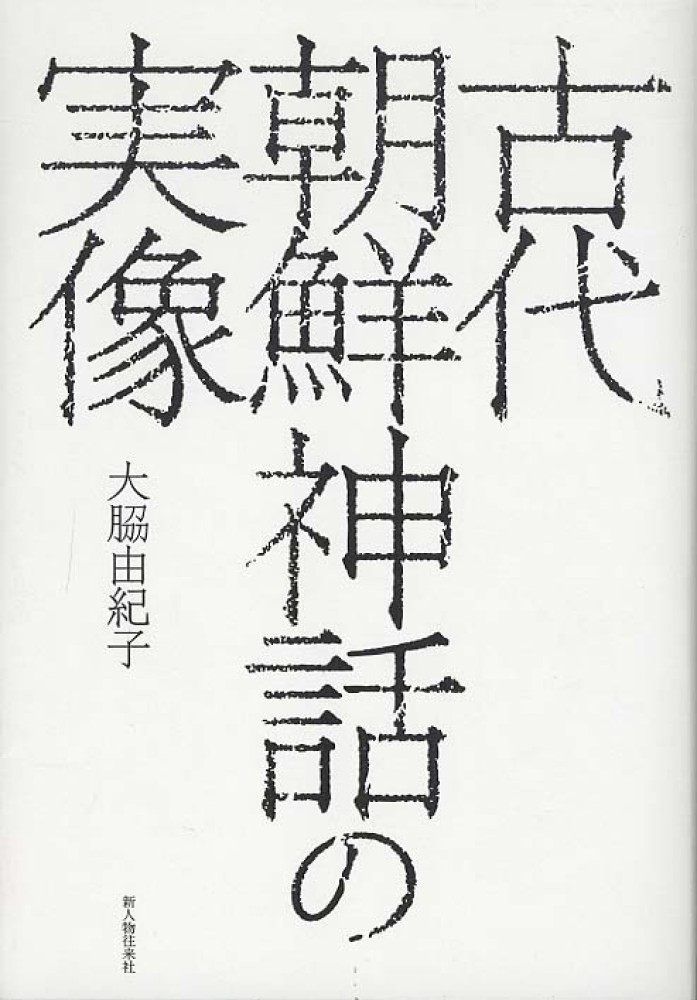 古代
朝鮮神話の
実像
大脇由紀子
新人物往来社